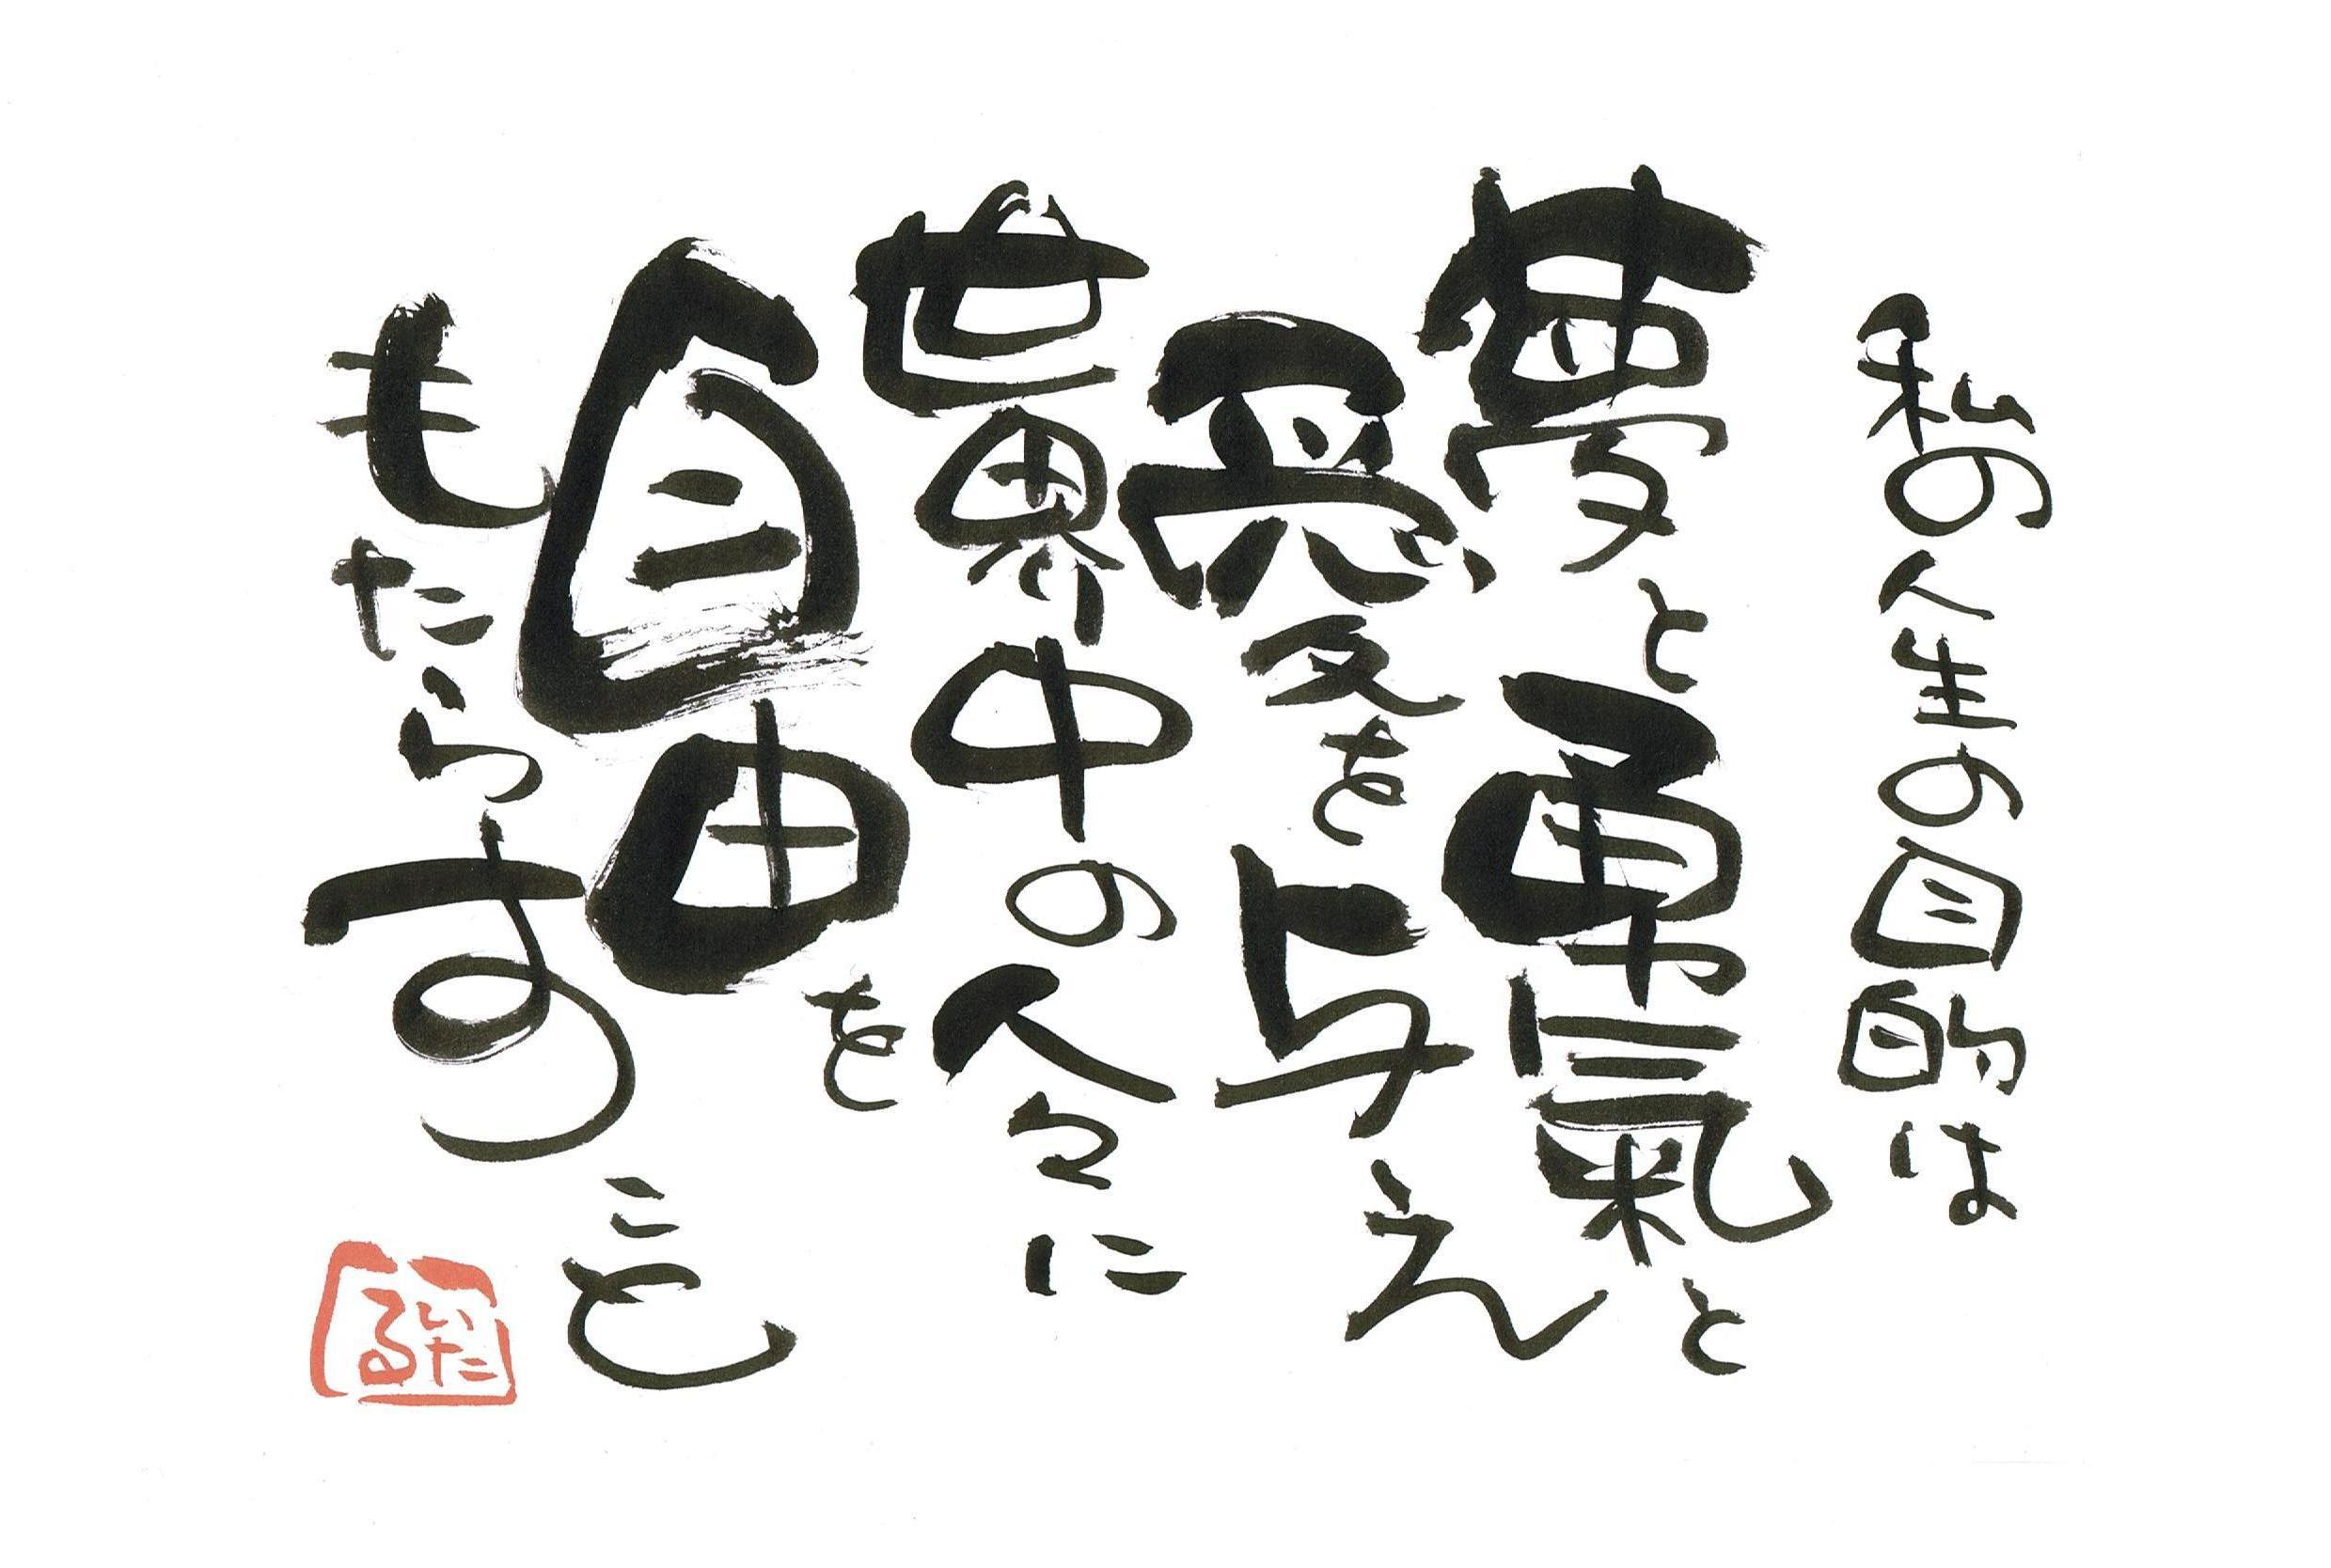 私の人生の目的は
夢と勇氣と
愛を与え
世界中の人々に
自由を
もたらすこと
いたる